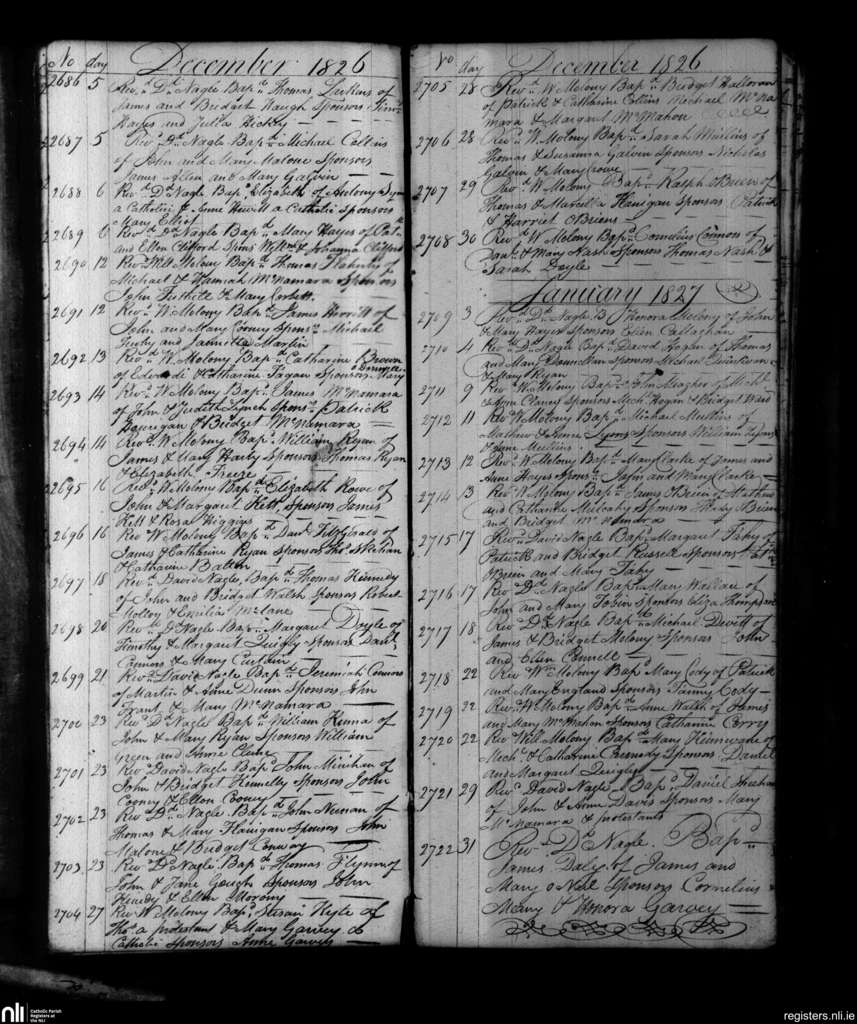 No day December 1826
2686 5 Revd Dd Nagle Bapd Thomas Larkins of
James and Bridget Waugh Sponsors
Hayes and Julia Hickey
2687 5 Revd Dd Nagle Bapd Michael Collins
of John and Mary Malone Sponsors
James Allen and Mary Galvin
2688 6 Revd Dd Nagle Bapd Elizabeth of Antony
a Catholic & Anne Hewitt a Catholic Sponsors
Mary Elliot
2689 6 Revd Dd Nagle Bapd Mary Hayes of Patk
and Ellen Clifford Spons Willm & Johanna Clifford
2690 12 Revd Will Molony Bapd Thomas Flaherty of
Michael & Hannah McNamara Sponsors
John & Mary Corbett
2691 12 Revd W. Molony Bapd James Hewitt of
John and Mary Cooney Sponsrs Michael
and Martin
2692 13 Revd W. Molony Bapd Catharine Brown
of Edward & Catharine Fagan Sponsors Mary
2693 14 Revd W Molony Bapd James McNamara
of John & Judith Lynch Sponsrs Patrick
& Bridget McNamara
2694 14 Revd W Molony Bapd William Ryan of
James & Mary Hardy Sponsors Thomas Ryan
& Elizabeth Freeze
2695 16 Revd W Molony Bapd Elizabeth Rowe of
John & Margaret Kett, Sponsors James
Kett & Rosa Higgins
2696 16 Revd W Molony Bapd Danl Fitzgerald of
James & Catherine Ryan Sponsors Thos Shehan
& Catharine Batten
2697 18 Revd David Nagle, Bapd Thomas Kennedy
of John and Bridget Walsh Sponsors Robert
Molloy & Emilia McLane
2698 20 Revd D Nagle Bapd Margaret Doyle of
Timothy & Margaret Quigly Sponsors Danl
Connors & Mary Curtain
2699 21 Revd David Nagle Bapd Jeremiah Connors
of Martin & Anne Dunn Sponsors John
Grant & Mary McNamara
2700 23 Revd Dd Nagle Bapd William Kinna of
John & Mary Ryan Sponsors William
Green and Anne Clune
2701 23 Revd David Nagle Bapd John Minihan of
John & Bridget Kennelly Sponsors John
Cooney & Ellen Cooney
2702 23 Revd Dd Nagle Bapd John Neenan of
Thomas & Mary Flanigan Sponsors John
Malone & Bridget Conway
2703 23 Revd Dd Nagle Bapd Thomas Flynn of
John & Jane Gough Sponsors John
& Ellen Morony
2704 27 Revd W Molony Bapd Susan Hyde of
Thos a protestant & Mary Garvey a
Catholic Sponsors Anne Garvey
No day December 1826
2705 28 Revd W Molony Bapd Bridget Halloran
of Patrick & Catharine Collins Michael McNa
mara & Margaret McMahon
2706 28 Revd W. Molony Bapd Sarah Mullins of
Thomas & Susanna Galvin Sponsors Nicholas
Galvin & Mary Crowe
2707 29 Revd W. Molony Bapd Ralph OBrien of
Thomas & Marcella Hanigan Sponsors Patrick
& Harriet OBriens
2708 30 Revd W Molony Bapd Cornelius Connors of
Danl & Mary Nash Sponsors Thomas Nash &
Sarah Doyle
January 1827
2709 3 Revd Dd Nagle B Honora Molony of John
& Mary Hayes Sponsors Ellen Callaghan
2710 4 Revd Dd Nagle Bapd David Hogan of Thomas
and Mary Sponsors Michael
& Mary Ryan
2711 9 Revd W. Molony Bapd John Meagher of Michl
& Ann Clancy Sponsors Mich. Hogan & Bridget Ward
2712 11 Revd W Molony Bapd Michael Mullins of
Mathew & Anne Lyons Sponsors William Lyons
& Jane Mullins
2713 12 Revd W. Molony Bapd Mary Clarke of James and
Anne Hayes Sponsrs John and Mary Clarke
2714 13 Revd W. Molony Bapd James OBrien of Mathew
and Catharine Mulcahy Sponsors OBrien
and Bridget McNamara
2715 17 Revd David Nagle Bapd Margaret Fahy of
Patrick and Bridget Russell Sponsors Patk
OBrien and Mary Fahy
2716 17 Revd Dd Nagle Bapd Mary Wallace of
John and Mary Tobin Sponsors Eliza Thompson
2717 18 Revd Dd Nagle Bapd Michael Devitt of
James & Bridget Molony Sponsors John
and Ellen Connell
2718 22 Revd W. Molony Bapd Mary Cody of Patrick
and Mary England Sponsors Fanny Cody
2719 22 Revd W Molony Bapd Anne Walsh of James
and Mary McMahon Sponsors Catharine Corry
2720 22 Revd Will Molony Bapd Mary of
Mich. & Catharine Sponsors Daniel
and Margaret Quigley
2721 29 Revd David Nagle Bapd Daniel Sheehan
of John & Anne Davis Sponsors Mary
McNamara & protestant
2722 31 Revd Dd Nagle. Bapd
James Daly of James and
Mary o Neil Sponsors Cornelius
Meany & Honora Garvey
nli Catholic Parish
Registers at
the NLI
registers.nli.ie